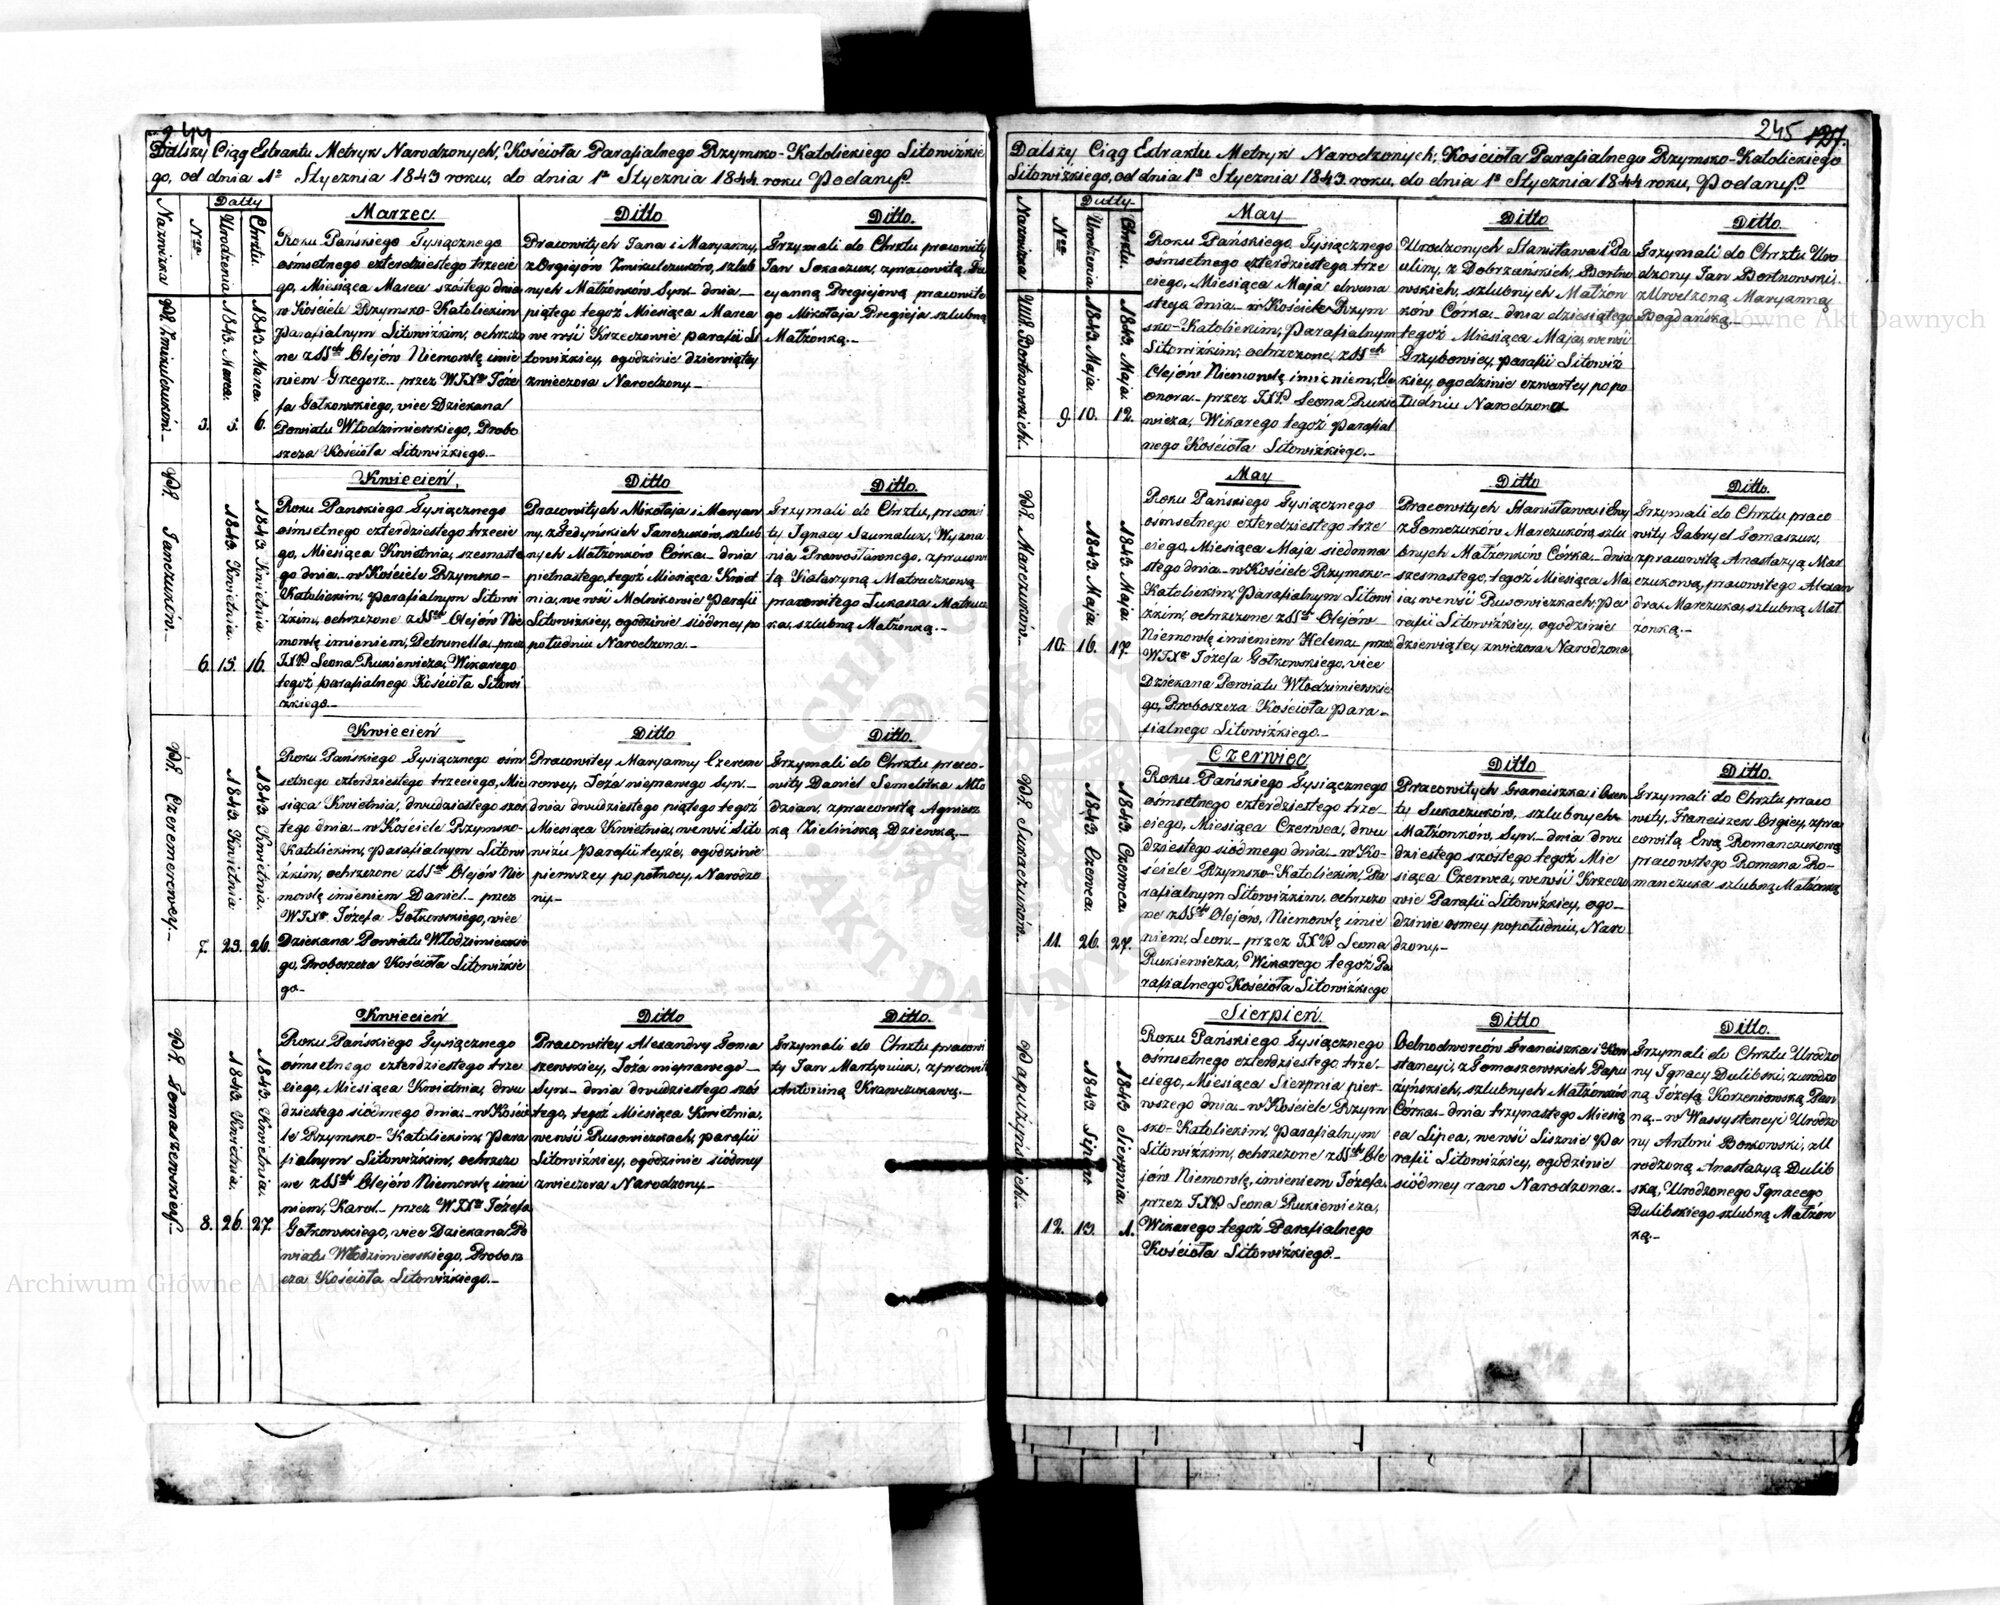 244
Dalszy Ciąg Estraktu Metryk Narodzonych, Kościoła Parafialnego Rzymsko-Katolickiego Litowizkie
go, od dnia 1º Stycznia 1843 roku, do dnia 1º Stycznia 1844 roku Podany
Nazwiska
Nro
Datty
Urodzenia
Chrztu.
PP. Zmikulczuków
3.
5.
1843. Marca.
6.
1843. Marca
Marzec.
Roku Pańskiego Tysiącznego
ośmsetnego czterdziestego trzecie
go, Miesiąca Marca szóstego dnia
w Kościele Rzymsko-Katolickim
Parafialnym Litowizkim, ochrzczo
ne z SSch Olejow Niemowlę imie
niem Grzegorz przez WJXa Józe
fa Gotkowskiego, vice Dziekana
Powiatu Włodzimierskiego, Probo
szcza Kościoła Litowizkiego.
Ditto
Pracowitych Jana i Maryanny,
z Orgiejów Zmikulczuków, szlub
nych Małżonków Syn dnia
piątego tegoż Miesiąca Marca
we wsi Krzeczowie parafii Li
towizkiey, o godzinie dziewiątey
zwieczora Narodzony
Ditto.
Trzymali do Chrztu pracowity
Jan Sokaczuk, z pracowitą Lu
cyanną Dregiejową pracowite
go Mikołaja Dregieja szlubną
Małżonką.
PP. Janczuków
6.
15.
1843 Kwietnia
16.
1843 Kwietnia
Kwiecień
Roku Pańskiego Tysiącznego
ośmsetnego czterdziestego trzecie
go, Miesiąca Kwietnia, szesnaste
go dnia w Kościele Rzymsko-
Katolickim, parafialnym Litowi
zkim, ochrzczone z SSch Olejów Nie
mowlę imieniem, Petrunella przez
JXP Leona Rukiewicza, Wikarego
tegoż parafialnego Kościoła Litowi
zkiego.
Ditto
Pracowitych Mikołaja i Maryan
ny z Sedyńskich Janczuków, szlub
nych Małżonków Córka dnia
pietnastego, tegoż Miesiąca Kwiet
nia, we wsi Molnikowie Parafii
Litowizkiey, o godzinie siódmey po
południu Narodzona.
Ditto.
Trzymali do Chrztu, pracowi
ty Ignacy Szumaluk, Wyzna
nia Prawosławnego, z pracowi
tą Katarzyną Matruczkową
pracowitego Lukasza Matrucz
ka, szlubną Małżonką.
PP. Czeremerowey.
7.
25.
1843 Kwietnia
26.
1843 Kwietnia.
Kwiecień
Roku Pańskiego Tysiącznego ośm
setnego czterdziestego trzeciego, Mie
siąca Kwietnia, dwudziestego szós
tego dnia w Kościele Rzymsko-
Katolickim, parafialnym Litowi
zkim, ochrzczone z SSch Olejów Nie
mowlę imieniem Daniel przez
WJXa Józefa Gotkowskiego, vice
Dziekana Powiatu Włodzimierskie
go, Proboszcza Kościoła Litowizkie
go
Ditto
Pracowitey Maryanny Czereme
rowey, Łoża nieprawego Syn
dnia dwudziestego piątego tegoż
Miesiąca Kwietnia, we wsi Lito
wizu Parafii teyże, o godzinie
pierwszey po północy, Narodzo
ny
Ditto.
Trzymali do Chrztu praco-
wity Daniel Semeliżka Mło
dzian, z pracowitą Agniesz
ką Zielińską Dziewką.
PP. Tomaszewskiey
8.
26.
1843 Kwietnia.
27.
1843. Kwietnia.
Kwiecień
Roku Pańskiego Tysiącznego
ośmsetnego czterdziestego trze
ciego, Miesiąca Kwietnia, dwu
dziestego siódmego dnia w Kościo
le Rzymsko-Katolickim, para
fialnym Litowizkim, ochrzczo
ne z SSch Olejów Niemowlę imie
niem, Karol przez WJXa Józefa
Gotkowskiego, vice Dziekana Po
wiatu Włodzimierskiego, Probosz
cza Kościoła Litowizkiego.
Ditto
Pracowitey Alexandry Toma
szewskiey, Łoża nieprawego
Syn dnia dwudziestego szós
tego, tegoż Miesiąca Kwietnia,
we wsi Rusowiczkach, parafii
Litowizkiey, o godzinie siódmey
zwieczora Narodzony.
Ditto.
Trzymali do Chrztu pracowi
ty Jan Martyniuk, z pracowitą
Antoniną Krawczukową.
245
Dalszy Ciąg Estraktu Metryk Narodzonych, Kościoła Parafialnego Rzymsko-Katolickiego
Litowizkiego, od dnia 1º Stycznia 1843 roku, do dnia 1º Stycznia 1844 roku, Podany
Nazwiska
Nro
Datty
Urodzenia
Chrztu.
UU. Bortnowskich.
9.
10.
1843 Maja.
12.
1843 Maja.
May
Roku Pańskiego Tysiącznego
ośmsetnego czterdziestego trze
ciego, Miesiąca Maja dwuna
stego dnia w Kościele Rzym
sko-Katolickim, parafialnym
Litowizkim, ochrzczone, z SSch
Olejów Niemowlę imieniem, Ele
onora przez JXP Leona Rukie
wicza, Wikarego tegoż parafial
nego Kościoła Litowizkiego.
Ditto
Urodzonych Stanisława i Pa
uliny, z Dobrzańskich, Bortno
wskich, szlubnych Małżon
ków Córka dnia dziesiątego
tegoż Miesiąca Maja, we wsi
Grzybowicy, parafii Litowiz
kiey, o godzinie czwartey po po
łudniu Narodzona
Ditto.
Trzymali do Chrztu Uro
dzony Jan Bortnowski
z Urodzoną Maryanną
Bogdańską
PP. Marczuków
10.
16.
1843 Maja.
17.
1843 Maja.
May
Roku Pańskiego Tysiącznego
ośmsetnego czterdziestego trze
ciego, Miesiąca Maja siedmna
stego dnia w Kościele Rzymsko-
Katolickim, Parafialnym Litowi
zkim, ochrzczone z SSch Olejów
Niemowlę imieniem Helena przez
WJXa Józefa Gotkowskiego, vice
Dziekana Powiatu Włodzimierskie
go, Proboszcza Kościoła Para-
fialnego Litowizkiego.
Ditto
Pracowitych Stanisława i Ewy
z Tomczuków Marczuków, szlu
bnych Małżonków Córka dnia
szesnastego, tegoż Miesiąca Ma
ia, we wsi Rusowiczkach, pa
rafii Litowizkiey, o godzinie
dziewiątey zwieczora Narodzona
Ditto.
Trzymali do Chrztu praco
wity Gabryel Tomaszuk,
z pracowitą Anastazyą Mar
czukową, pracowitego Alexan
dra Marczuka, szlubną Mał
żonką.
PP. Sukaczuków
11.
26.
1843 Czerwca.
27.
1843 Czerwca
Czerwiec
Roku Pańskiego Tysiącznego
ośmsetnego czterdziestego trze-
ciego, Miesiąca Czerwca, dwu
dziestego siódmego dnia w Ko-
ściele Rzymsko-Katolickim, Pa
rafialnym Litowizkim, ochrzczo
ne z SSch Olejów, Niemowlę imie
niem, Leon przez JXP Leona
Rukiewicza, Wikarego tegoż Pa
rafialnego Kościoła Litowizkiego
Ditto
Pracowitych Franciszka i
Sukaczuków, szlubnych
Małżonków, Syn dnia dwu
dziestego szóstego tegoż Mie
siąca Czerwca, we wsi Krzeczo
wie Parafii Litowizkiey, o go-
dzinie osmey popołudniu, Naro
dzony.
Ditto.
Trzymali do Chrztu praco
wity, Franciszek Orgiey, z pra
cowitą Ewą Romanczukową
pracowitego Romana Ro-
manczuka szlubną Małżonką
Papużyńskich.
12.
13.
1843 Lipca
1.
1843 Sierpnia
Sierpień.
Roku Pańskiego Tysiącznego
ośmsetnego czterdziestego trze-
ciego, Miesiąca Sierpnia pier-
wszego dnia w Kościele Rzym
sko-Katolickim, Parafialnym
Litowizkim, ochrzczone z SSch Ole
jów Niemowlę, imieniem Józefa
przez JXP Leona Rukiewicza,
Wikarego tegoż Parafialnego
Kościoła Litowizkiego
Ditto
Odnodworców Franciszka i Kon
stancyi, z Tomaszewskich Papu
żyńskich, szlubnych Małżonków
Córka dnia trzynastego Miesią
ca Lipca, we wsi Lisznie Pa
rafii Litowizkiey, o godzinie
siódmey rano Narodzona.
Ditto.
Trzymali do Chrztu Urodzo
ny Ignacy Dulibski, z urodzo
ną Józefą Korzeniowską Pan
ną w Wassystencyi Urodzo
ny Antoni Borkowski, z U
rodzoną Anastazyą Dulib
ską, Urodzonego Ignacego
Dulibskiego szlubną Małżon
ką.
Archiwum Główne Akt Dawnych
Archiwum Główne Akt Dawnych